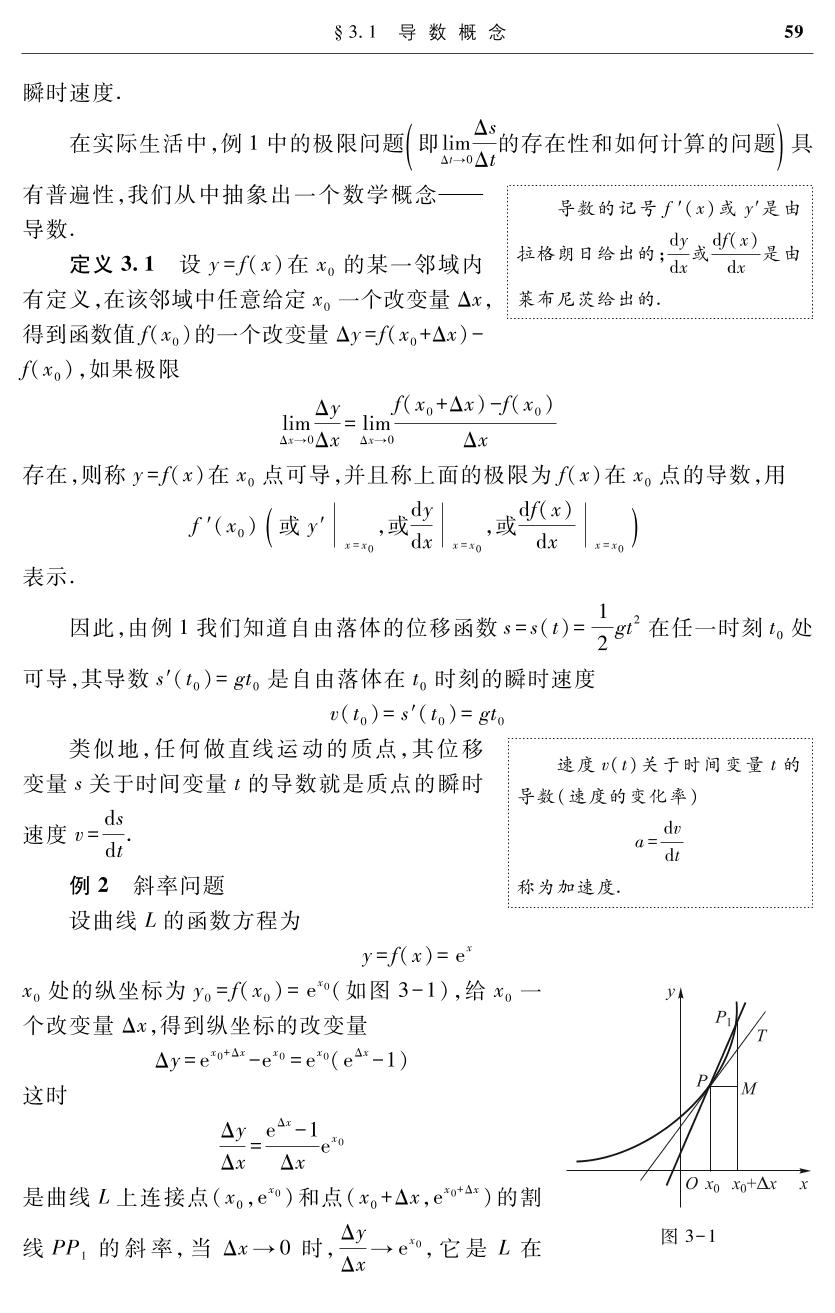 §3.1 导数概念 59
瞬时速度.
在实际生活中,例 1 中的极限问题(即 lim_{Δt→0} Δs/Δt 的存在性和如何计算的问题)具
有普遍性,我们从中抽象出一个数学概念——
导数.
导数的记号 f′(x)或 y′是由
拉格朗日给出的; dy/dx 或 df(x)/dx 是由
莱布尼茨给出的.
定义 3.1 设 y=f(x)在 x₀ 的某一邻域内
有定义,在该邻域中任意给定 x₀ 一个改变量 Δx,
得到函数值 f(x₀)的一个改变量 Δy=f(x₀+Δx)-
f(x₀),如果极限
lim_{Δx→0} Δy/Δx = lim_{Δx→0} (f(x₀+Δx)-f(x₀))/Δx
存在,则称 y=f(x)在 x₀ 点可导,并且称上面的极限为 f(x)在 x₀ 点的导数,用
f′(x₀) (或 y′|_{x=x₀},或 dy/dx|_{x=x₀},或 df(x)/dx|_{x=x₀})
表示.
因此,由例 1 我们知道自由落体的位移函数 s=s(t)= 1/2 gt² 在任一时刻 t₀ 处
可导,其导数 s′(t₀)=gt₀ 是自由落体在 t₀ 时刻的瞬时速度
v(t₀)=s′(t₀)=gt₀
类似地,任何做直线运动的质点,其位移
变量 s 关于时间变量 t 的导数就是质点的瞬时
速度 v= ds/dt.
速度 v(t)关于时间变量 t 的
导数(速度的变化率)
a= dv/dt
称为加速度.
例 2 斜率问题
设曲线 L 的函数方程为
y=f(x)=e^x
x₀ 处的纵坐标为 y₀=f(x₀)=e^{x₀}(如图 3-1),给 x₀ 一
个改变量 Δx,得到纵坐标的改变量
Δy=e^{x₀+Δx}-e^{x₀}=e^{x₀}(e^{Δx}-1)
这时
Δy/Δx = (e^{Δx}-1)/Δx e^{x₀}
是曲线 L 上连接点(x₀,e^{x₀})和点(x₀+Δx,e^{x₀+Δx})的割
线 PP₁ 的斜率,当 Δx→0 时, Δy/Δx→e^{x₀},它是 L 在
y
P₁
T
P
M
O x₀ x₀+Δx x
图 3-1